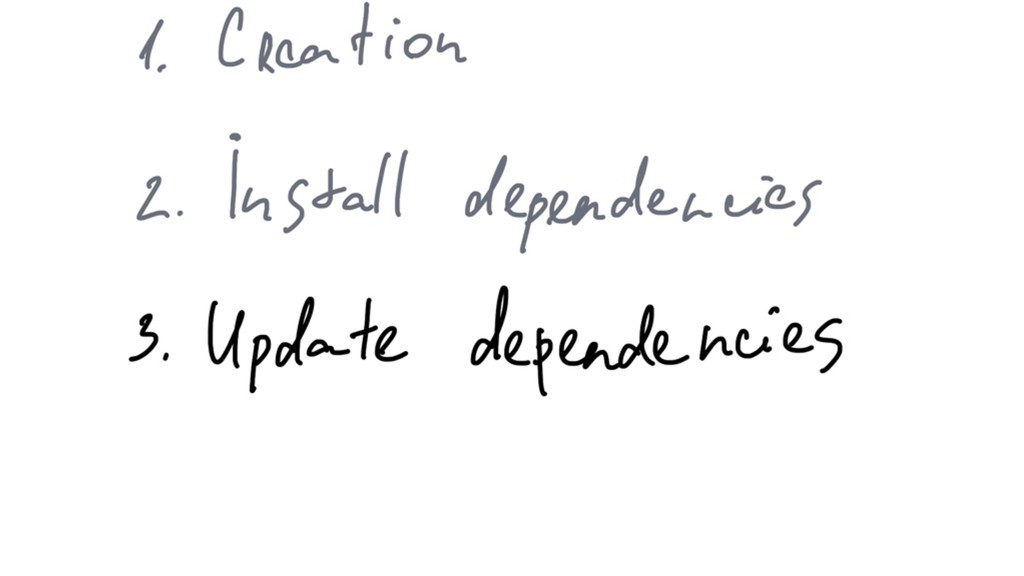 1. Creation
2. Install dependencies
3. Update dependencies